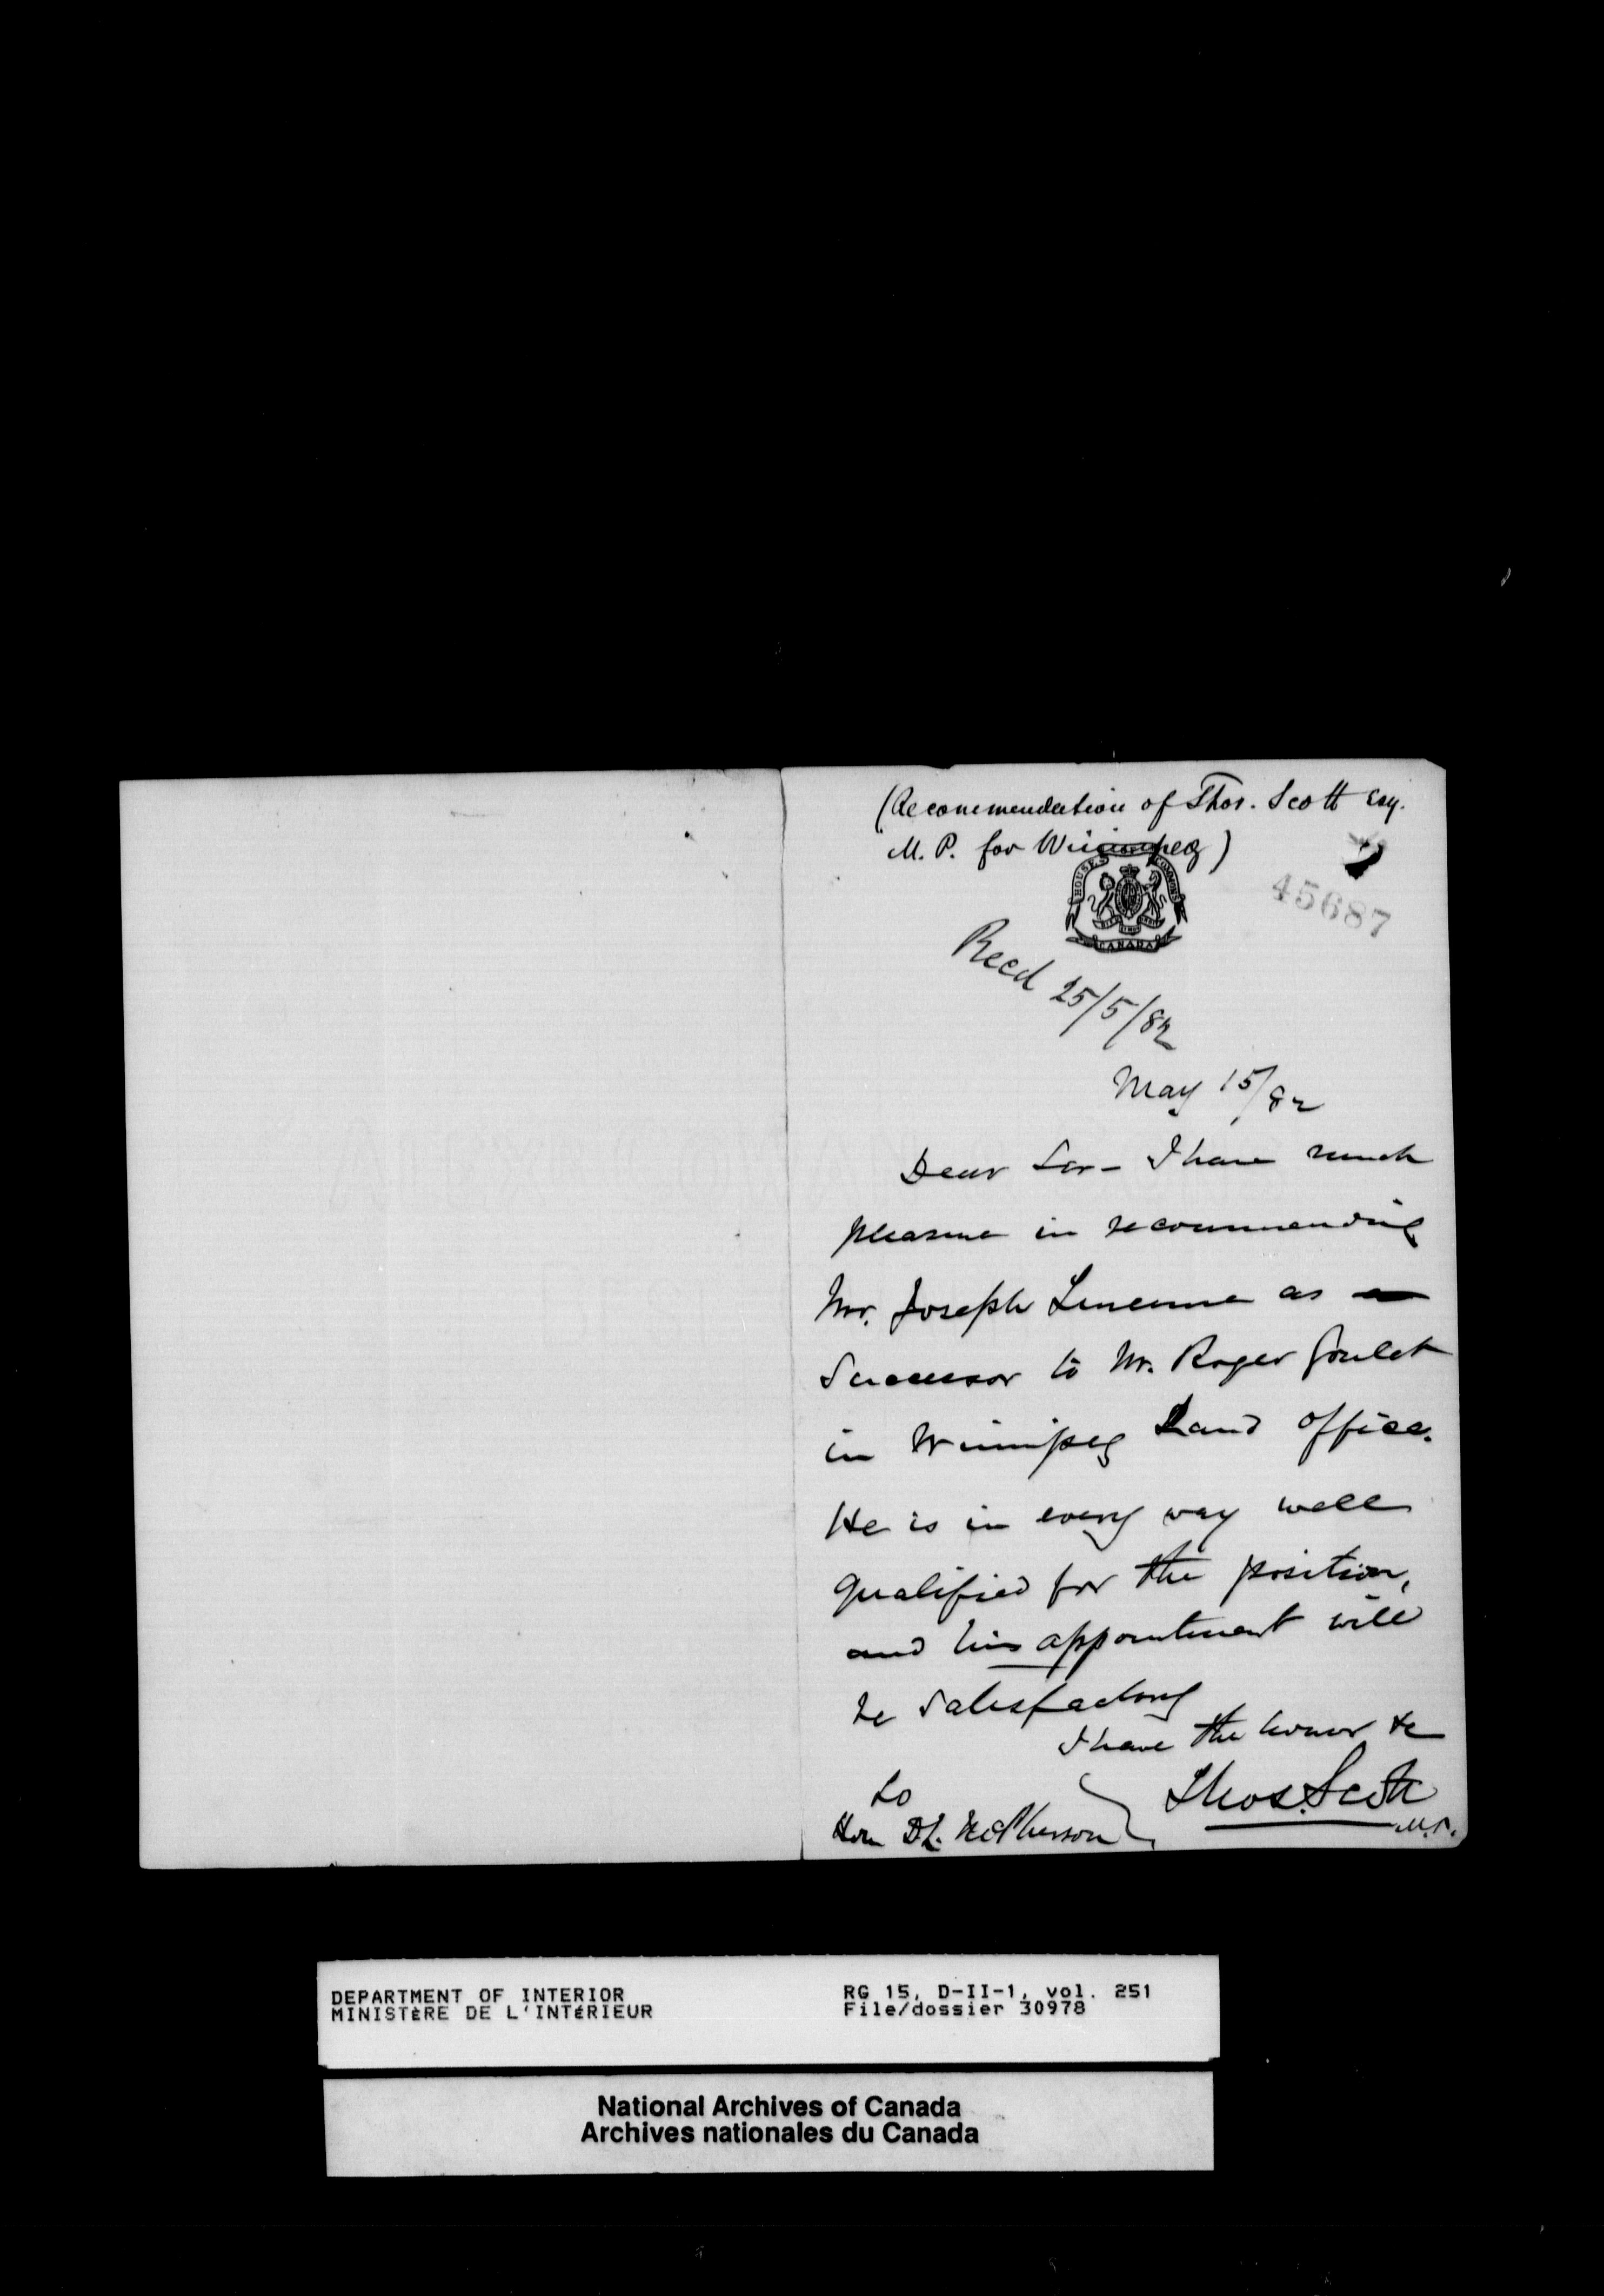 (Recommendation of Thos. Scott Esq.
M. P. for Winnipeg)
HOUSE OF COMMONS
CANADA
45687
Recd 25/5/82
May 15/82
Dear Sir - I have much
pleasure in recommending
Mr. Joseph as a
Successor to Mr. Roger Goulet
in Winnipeg Land Office.
He is in every way well
qualified for the position,
and his appointment will
be satisfactory
I have the honor &c
Thos. Scott
M.P.
To
Hon D.L. McPherson
DEPARTMENT OF INTERIOR
MINISTÈRE DE L'INTÉRIEUR
RG 15, D-II-1, vol. 251
File/dossier 30978
National Archives of Canada
Archives nationales du Canada